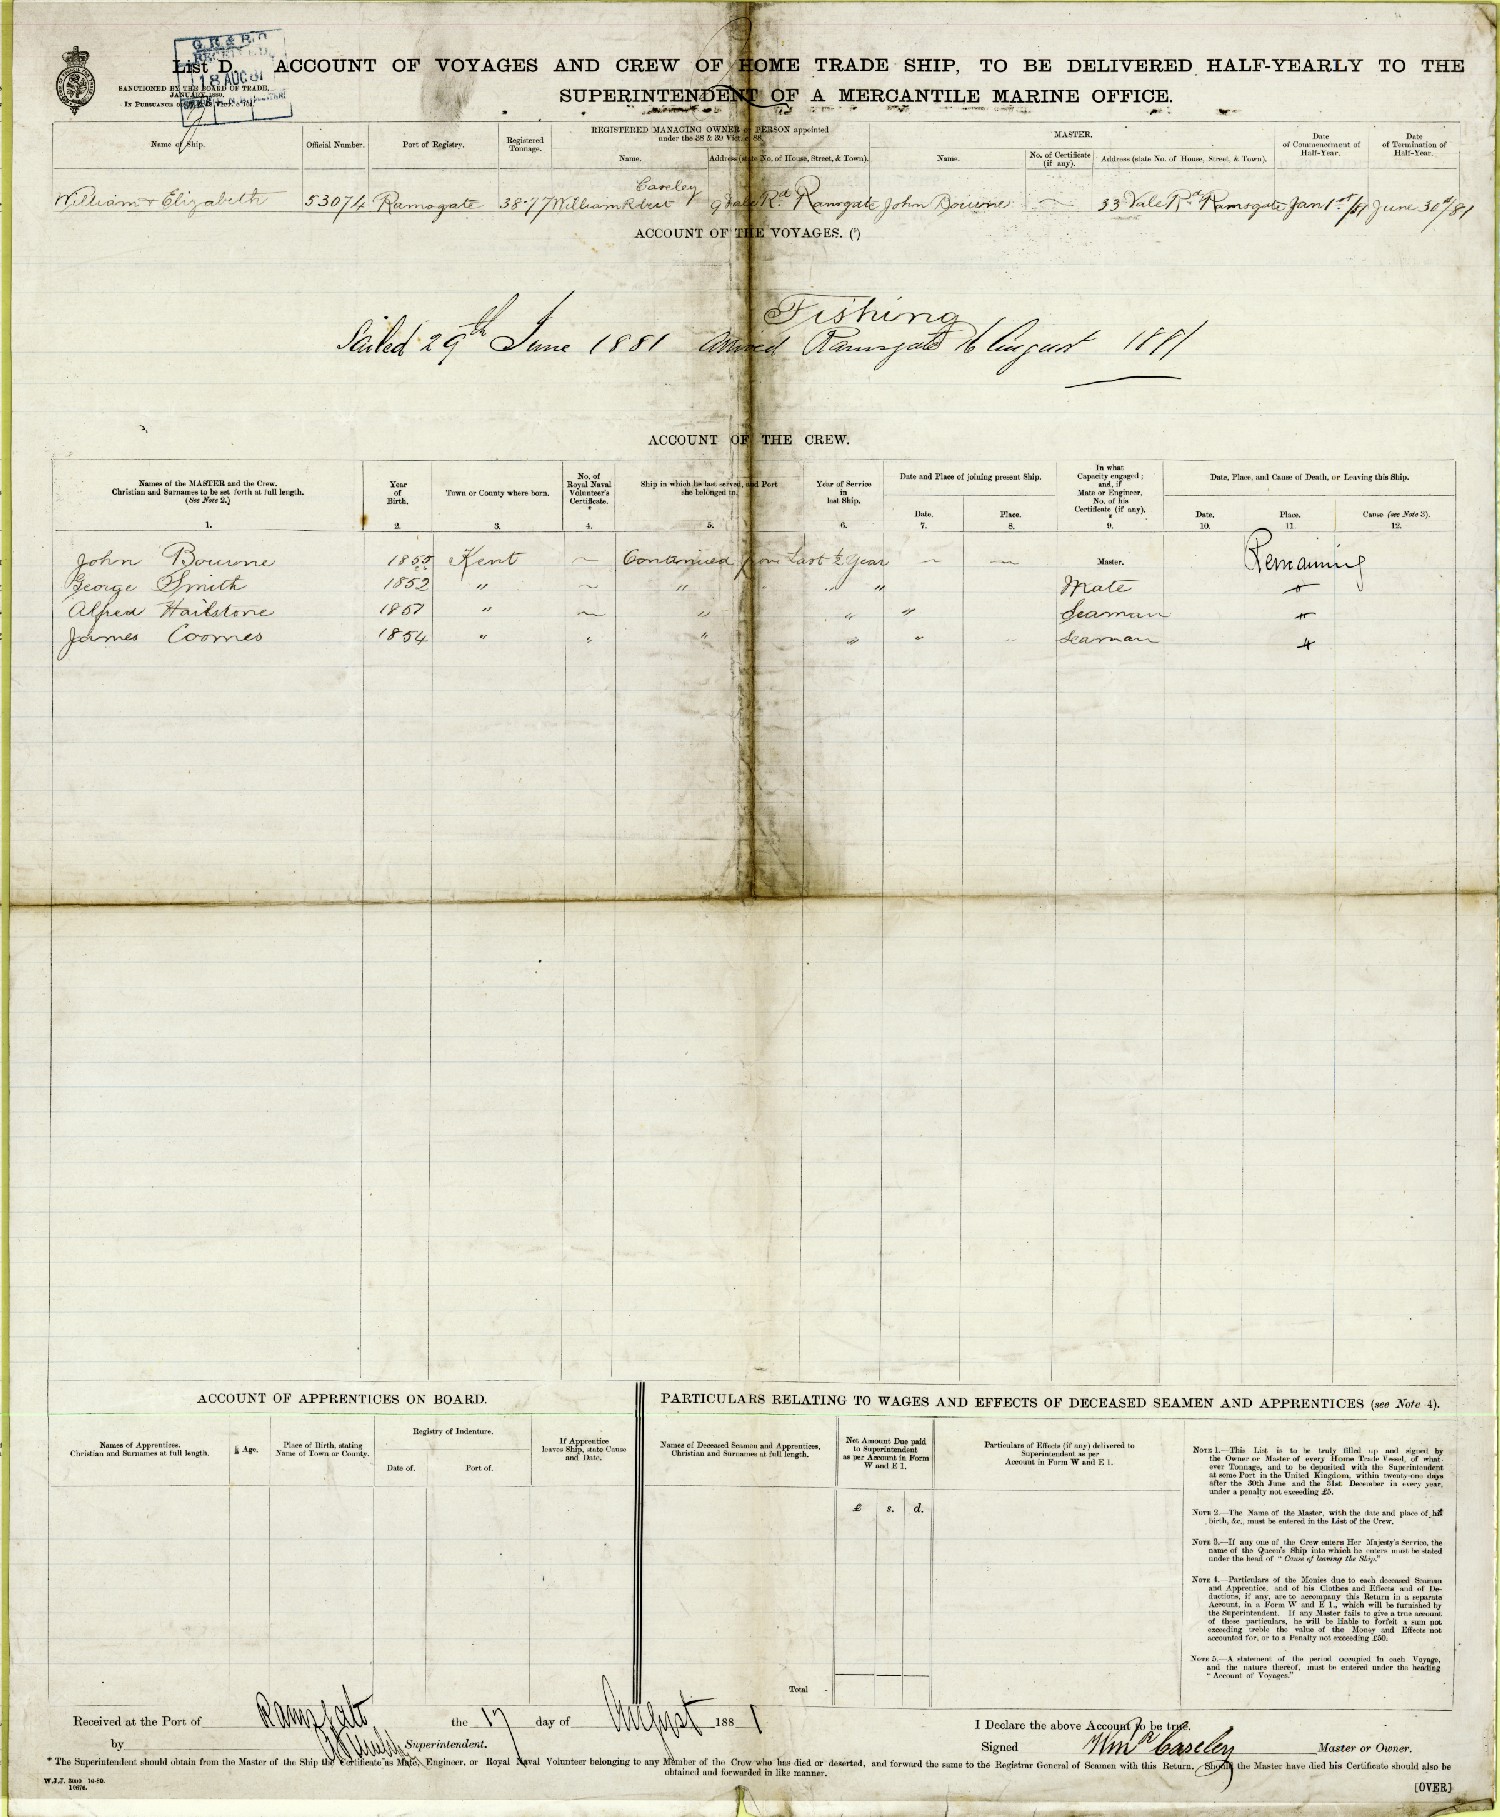 G.R. & R.O
RECEIVED
18 AUG 81
List D. ACCOUNT OF VOYAGES AND CREW OF HOME TRADE SHIP, TO BE DELIVERED HALF-YEARLY TO THE
SUPERINTENDENT OF A MERCANTILE MARINE OFFICE.
SANCTIONED BY THE BOARD OF TRADE,
JANUARY, 1880.
IN PURSUANCE
Name of Ship. Official Number. Port of Registry. Registered Tonnage. REGISTERED MANAGING OWNER or PERSON appointed under the 38 & 39 Vict. c. 88. MASTER. Date of Commencement of Half-Year. Date of Termination of Half-Year.
Name. Address (state No. of House, Street, & Town). Name. No. of Certificate (if any). Address (state No. of House, Street, & Town).
William + Elizabeth 53074 Ramsgate 38·77 William Robert Caseley 9 Vale Rd Ramsgate John Bourne 33 Vale Rd Ramsgate Jan 1st/81 June 30th/81
ACCOUNT OF THE VOYAGES. (⁵)
Fishing
Sailed 29th June 1881 arrived Ramsgate 16 August 1881
ACCOUNT OF THE CREW.
Names of the MASTER and the Crew.
Christian and Surnames to be set forth at full length.
(See Note 2.)
Year of Birth.
Town or County where born.
No. of Royal Naval Volunteer's Certificate.
*
Ship in which he last served, and Port she belonged to.
Year of Service in last Ship.
Date and Place of joining present Ship.
Date. Place.
In what Capacity engaged; and, if Mate or Engineer, No. of his Certificate (if any).
*
Date, Place, and Cause of Death, or Leaving this Ship.
Date. Place. Cause (see Note 3).
1. 2. 3. 4. 5. 6. 7. 8. 9. 10. 11. 12.
John Bourne 1855 Kent ~ Continued from Last ½ Year ~ ~ Master. Remaining
George Smith 1852 " ~ " " " Mate "
Alfred Hailstone 1857 " ~ " " " Seaman "
James Coomes 1854 " " " " " Seaman "
ACCOUNT OF APPRENTICES ON BOARD.
Names of Apprentices.
Christian and Surnames at full length.
Age.
Place of Birth, stating Name of Town or County.
Registry of Indenture.
Date of. Port of.
If Apprentice leaves Ship, state Cause and Date.
PARTICULARS RELATING TO WAGES AND EFFECTS OF DECEASED SEAMEN AND APPRENTICES (see Note 4).
Names of Deceased Seamen and Apprentices,
Christian and Surnames at full length.
Net Amount Due paid to Superintendent as per Account in Form W and E 1.
£ s. d.
Particulars of Effects (if any) delivered to
Superintendent as per
Account in Form W and E 1.
Total
NOTE 1.—This List is to be truly filled up and signed by
the Owner or Master of every Home Trade Vessel, of what-
ever Tonnage, and to be deposited with the Superintendent
at some Port in the United Kingdom, within twenty-one days
after the 30th June and the 31st December in every year,
under a penalty not exceeding £5.
NOTE 2.—The Name of the Master, with the date and place of his
birth, &c., must be entered in the List of the Crew.
NOTE 3.—If any one of the Crew enters Her Majesty's Service, the
name of the Queen's Ship into which he enters must be stated
under the head of "Cause of leaving the Ship."
NOTE 4.—Particulars of the Monies due to each deceased Seaman
and Apprentice, and of his Clothes and Effects and of De-
ductions, if any, are to accompany this Return in a separate
Account, in a Form W and E 1., which will be furnished by
the Superintendent. If any Master fails to give a true account
of these particulars, he will be liable to forfeit a sum not
exceeding treble the value of the Money and Effects not
accounted for, or to a Penalty not exceeding £50.
NOTE 5.—A statement of the period occupied in each Voyage,
and the nature thereof, must be entered under the heading
"Account of Voyages."
Received at the Port of Ramsgate the 17 day of August 1881
by Superintendent.
I Declare the above Account to be true.
Signed Wm R Caseley Master or Owner.
* The Superintendent should obtain from the Master of the Ship the Certificate as Mate, Engineer, or Royal Naval Volunteer belonging to any Member of the Crew who has died or deserted, and forward the same to the Registrar General of Seamen with this Return. Should the Master have died his Certificate should also be
obtained and forwarded in like manner.
[OVER]